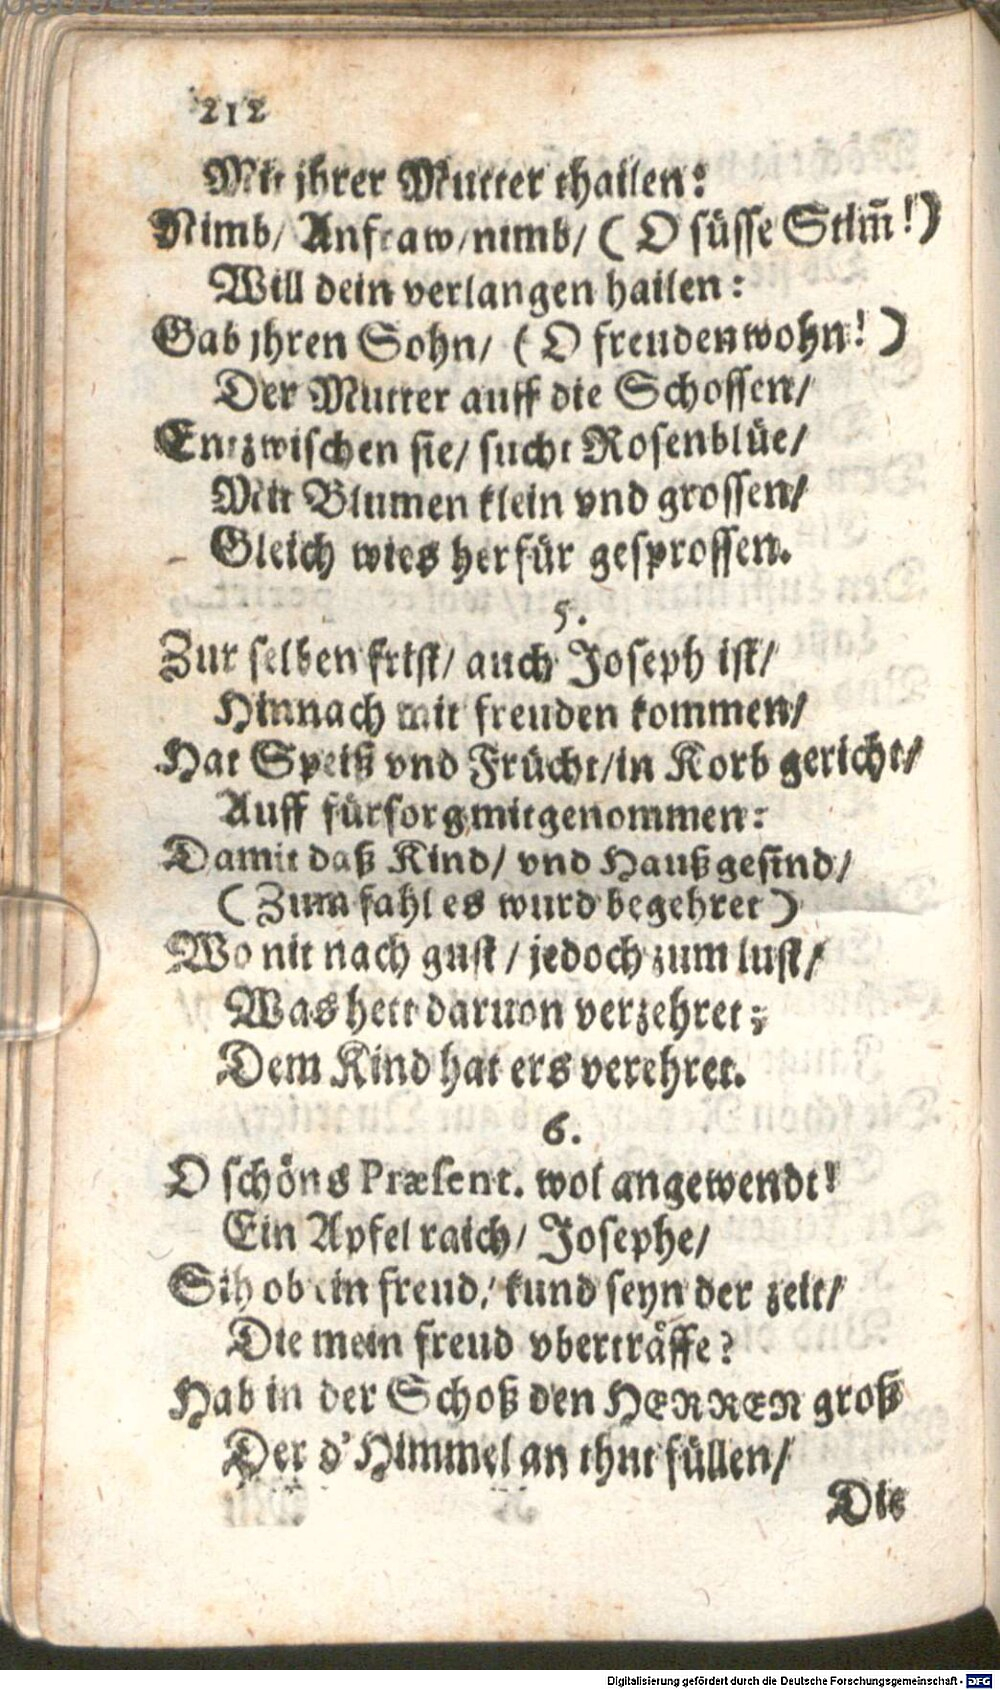 212
Mit jhrer Mutter thailen:
Nimb/ Anfraw/nimb/ (O süsse Stim̃!)
Will dein verlangen hailen:
Gab jhren Sohn/ (O freudenwohn!)
Der Mutter auff die Schossen/
Entzwischen sie/ sucht Rosenblüe/
Mit Blumen klein vnd grossen/
Gleich wies herfür gesprossen.
5.
Zur selben frist/ auch Joseph ist/
Hinnach mit freuden kommen/
Hat Speiß vnd Frücht/in Korb gericht/
Auff fürsorg mitgenommen:
Damit daß Kind/ vnd Haußgesind/
(Zum fahl es wurd begehret)
Wo nit nach gust/ jedoch zum lust/
Was hett daruon verzehret;
Dem Kind hat ers verehret.
6.
O schöns Præsent. wol angewendt!
Ein Apfel raich/ Josephe/
Sih ob ein freud/ kund seyn der zeit/
Die mein freud vberträffe?
Hab in der Schoß den HERREN groß
Der d'Himmel an thut füllen/
Die
Digitalisierung gefördert durch die Deutsche Forschungsgemeinschaft - DFG